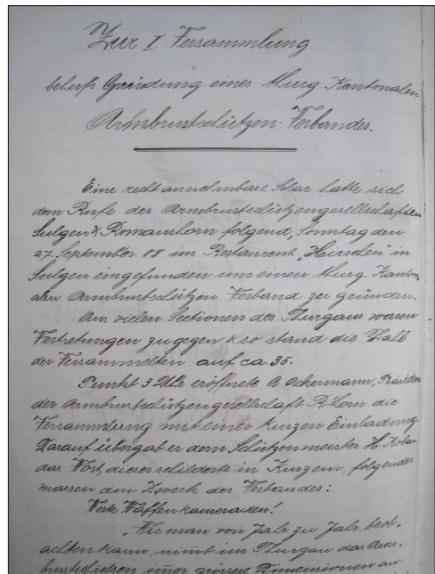 Zur I Versammlung
behufs Gründung eines thurg Kantonalen
Armbrustschützen-Verbandes.
Eine recht annehmbare Schar hatte sich
dem Rufe der Armbrustschützengesellschaften
Sulgen & Romanshorn folgend, Sonntag den
27. September 08 im Restaurant „Häuschen" in
Sulgen eingefunden um einen thurg. Kanton-
alen Armbrustschützen Verband zu gründen.
Aus vielen Sectionen des Thurgaus waren
Vertretungen zugegen & so stand die Zahl
der Versammelten auf ca 35.
Punkt 3 Uhr eröffnete A. Ackermann, Präsident
der Armbrustschützengesellschaft R'horn die
Versammlung mit einer kurzen Einladung.
Darauf übergab er dem Schützenmeister H.
das Wort, dieser schilderte in Kurzem, folgender
massen den Zweck des Verbandes:
Werte Waffenkameraden!
„Wie man von Jahr zu Jahr beob-
achten kann, nimmt im Thurgau das Arm-
brustschiessen immer grössere Dimensionen an